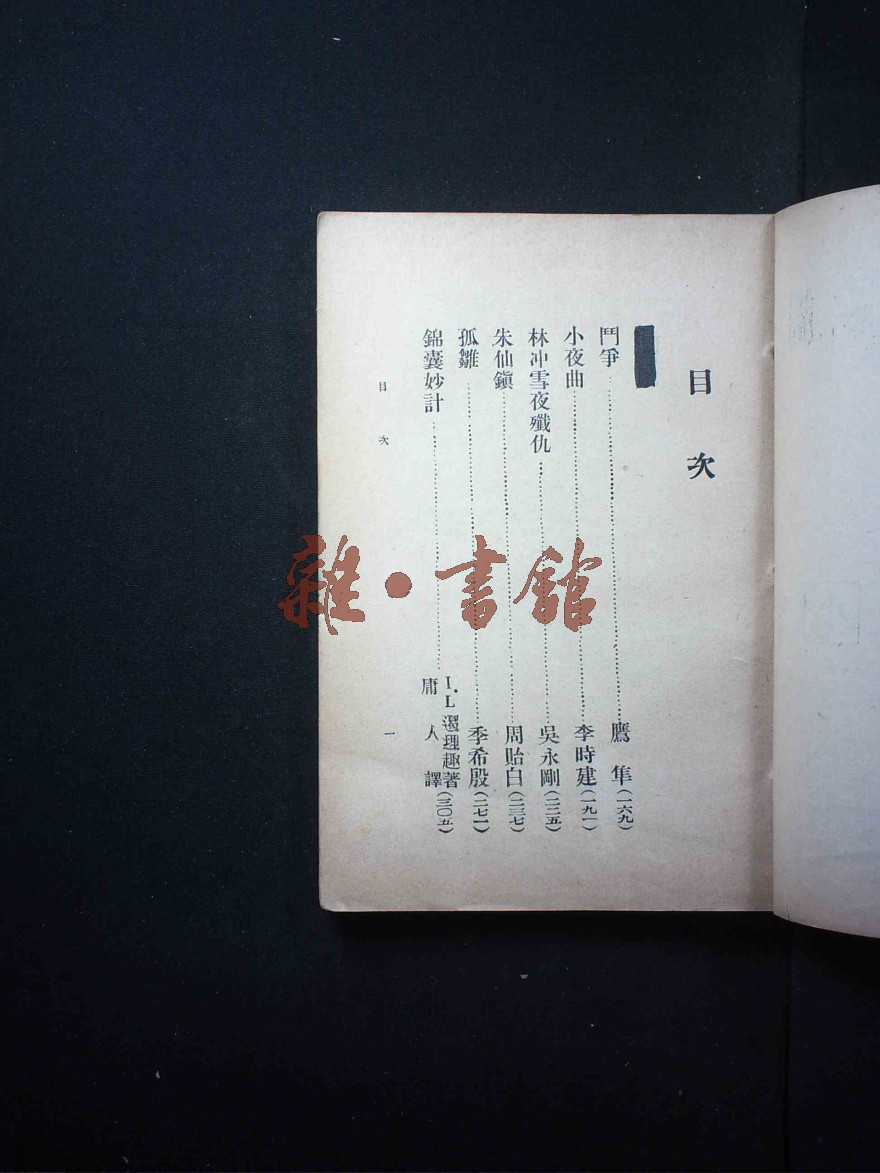 目次
鬥爭……鷹隼(一六九)
小夜曲……李時建(一九一)
林冲雪夜殲仇……吳永剛(二二五)
朱仙鎭……周貽白(二三七)
孤雛……季希殷(二七一)
錦囊妙計……I.L.𨗴理趣著
庸人譯(三〇五)
目次
一
雜·書館